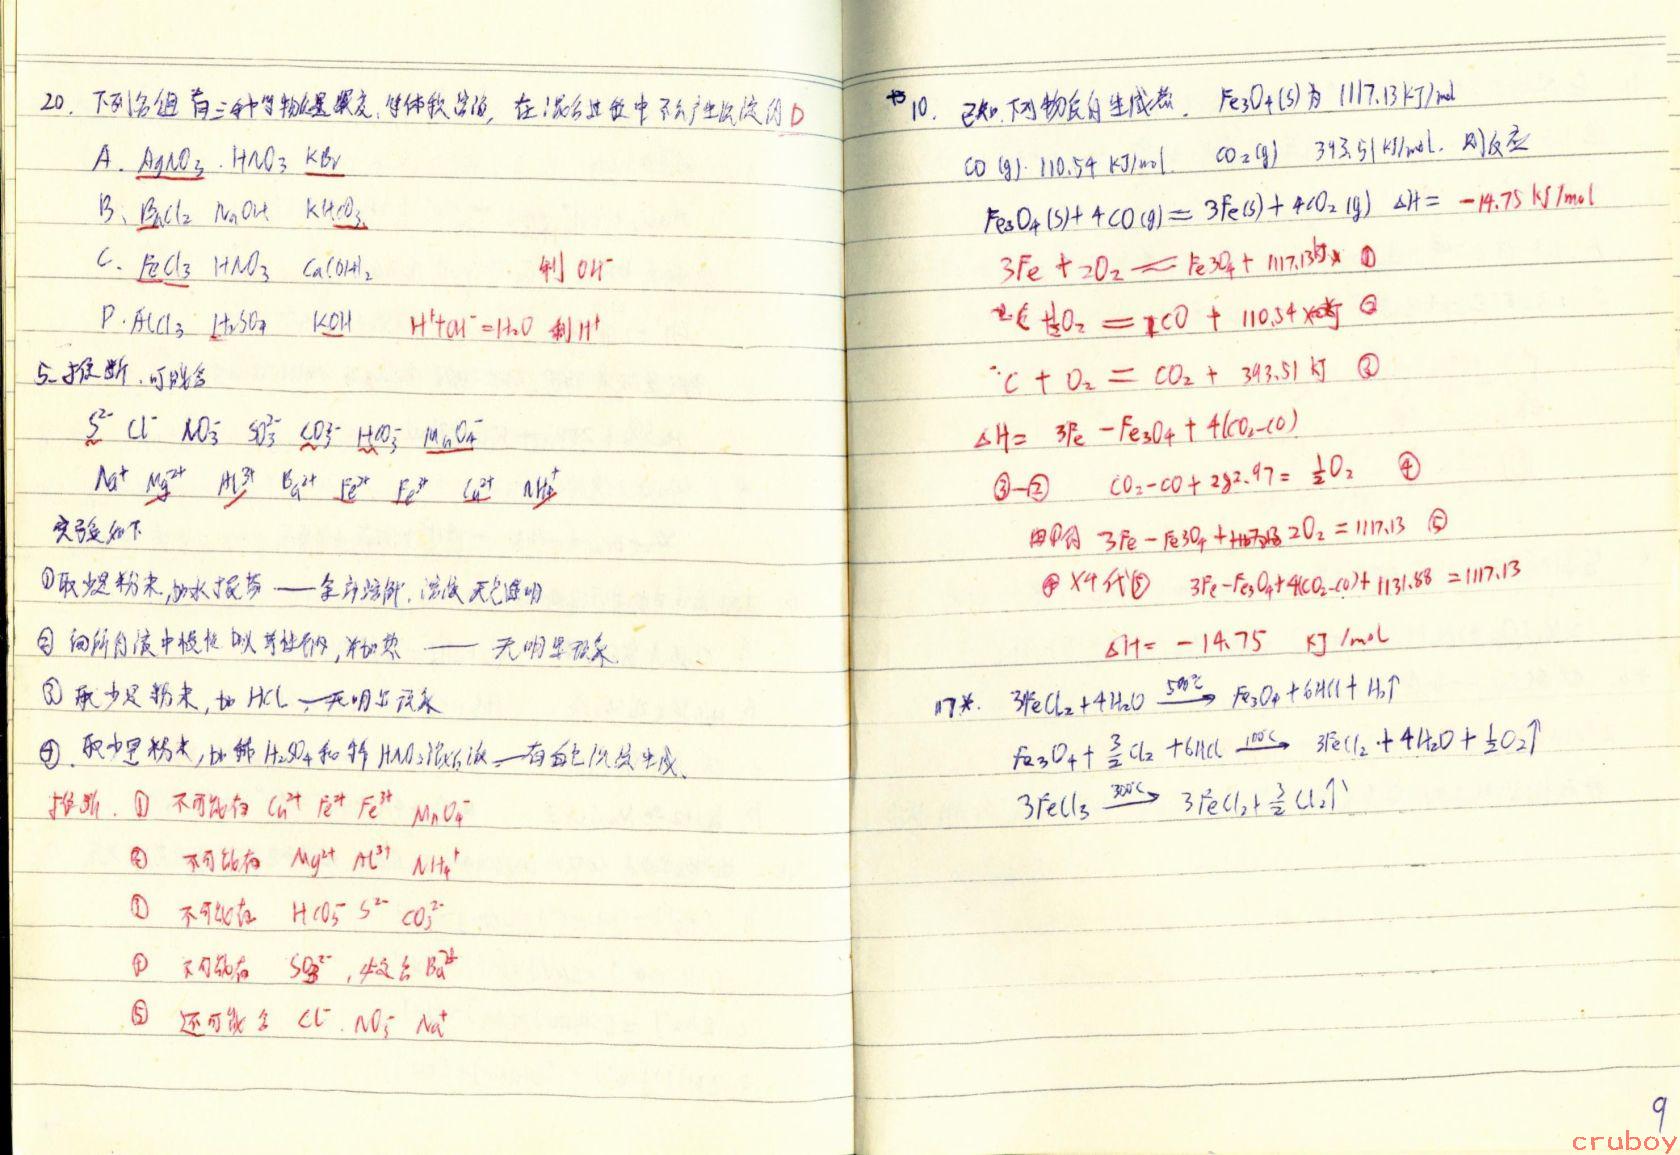 20. 下列各组有三种等物质量浓度.等体积溶液, 在混合过程中不会产生沉淀的D
A. AgNO₃. HNO₃ KBr
B. BaCl₂ NaOH KHCO₃
C. FeCl₃ HNO₃ Ca(OH)₂ 剩 OH⁻
D. AlCl₃ H₂SO₄ KOH H⁺+OH⁻=H₂O 剩H⁺
5. 推断.可能含
S²⁻ Cl⁻ NO₃⁻ SO₃²⁻ CO₃²⁻ HCO₃⁻ MnO₄⁻
Na⁺ Mg²⁺ Al³⁺ Ba²⁺ Fe²⁺ Fe³⁺ Cu²⁺ NH₄⁺
实验如下
①取少量粉末,加水振荡——全部溶解.溶液无色透明
② 向所得液中慢慢加 ,并加热 —— 无明显现象
③ 取少量粉末, 加 HCl —无明显现象
④. 取少量粉末, 加稀H₂SO₄和稀HNO₃混合液—有白色沉淀生成.
推断. ① 不可能有 Cu²⁺ Fe²⁺ Fe³⁺ MnO₄⁻
② 不可能有 Mg²⁺ Al³⁺ NH₄⁺
③ 不可能有 HCO₃⁻ S²⁻ CO₃²⁻
④ 不可能有 SO₃²⁻, 必定含 Ba²⁺
⑤ 还可能含 Cl⁻. NO₃⁻ Na⁺
10. 已知.下列物质的生成热. Fe₃O₄(s)为 1117.13 kJ/mol
CO (g). 110.54 kJ/mol. CO₂(g) 393.51 kJ/mol. 则反应
Fe₃O₄(s)+4CO(g)=3Fe(s)+4CO₂(g) ΔH= -14.75 kJ/mol
3Fe + 2O₂ = Fe₃O₄+ 1117.13kJ ①
C ½O₂ = CO + 110.54 kJ ②
C + O₂ = CO₂ + 393.51 kJ ③
ΔH= 3Fe - Fe₃O₄ + 4(CO₂-CO)
③-② CO₂-CO+282.97= ½O₂ ④
由①得 3Fe-Fe₃O₄+ 2O₂=1117.13 ⑤
④×4代⑤ 3Fe-Fe₃O₄+4(CO₂-CO)+1131.88=1117.13
ΔH= -14.75 kJ/mol
17*. 3FeCl₂+4H₂O —500℃→ Fe₃O₄+6HCl+H₂↑
Fe₃O₄+ 3/2 Cl₂ +6HCl —100℃→ 3FeCl₃+4H₂O+½O₂↑
3FeCl₃ —300℃→ 3FeCl₂+ 3/2 Cl₂↑
9
cruboy